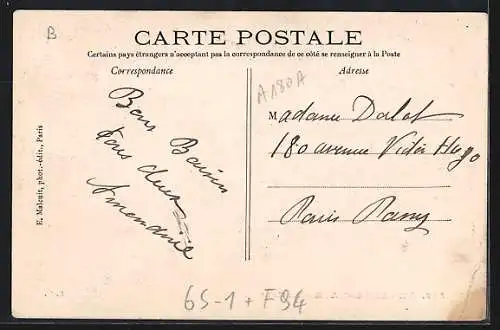 B
CARTE POSTALE
Certains pays étrangers n'acceptant pas la correspondance de ce côté se renseigner à la Poste
Correspondance
Adresse
A180A
Bons Baisers
tous deux
Madame
180 avenue Victor Hugo
Paris Passy
E. Malcuit, phot.-édit., Paris
6S-1 + F94